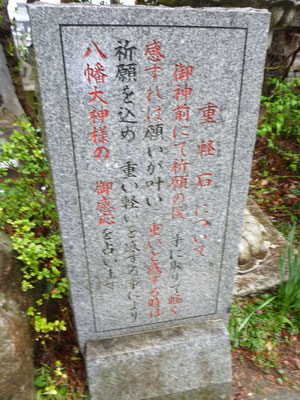 重軽石について
御神前にて祈願の後 手に取りて軽く
感ずれは願いが叶い 重いと感ずる時は
祈願を込め 重い軽いと感ずる事により
八幡大神様の 御感応を占います